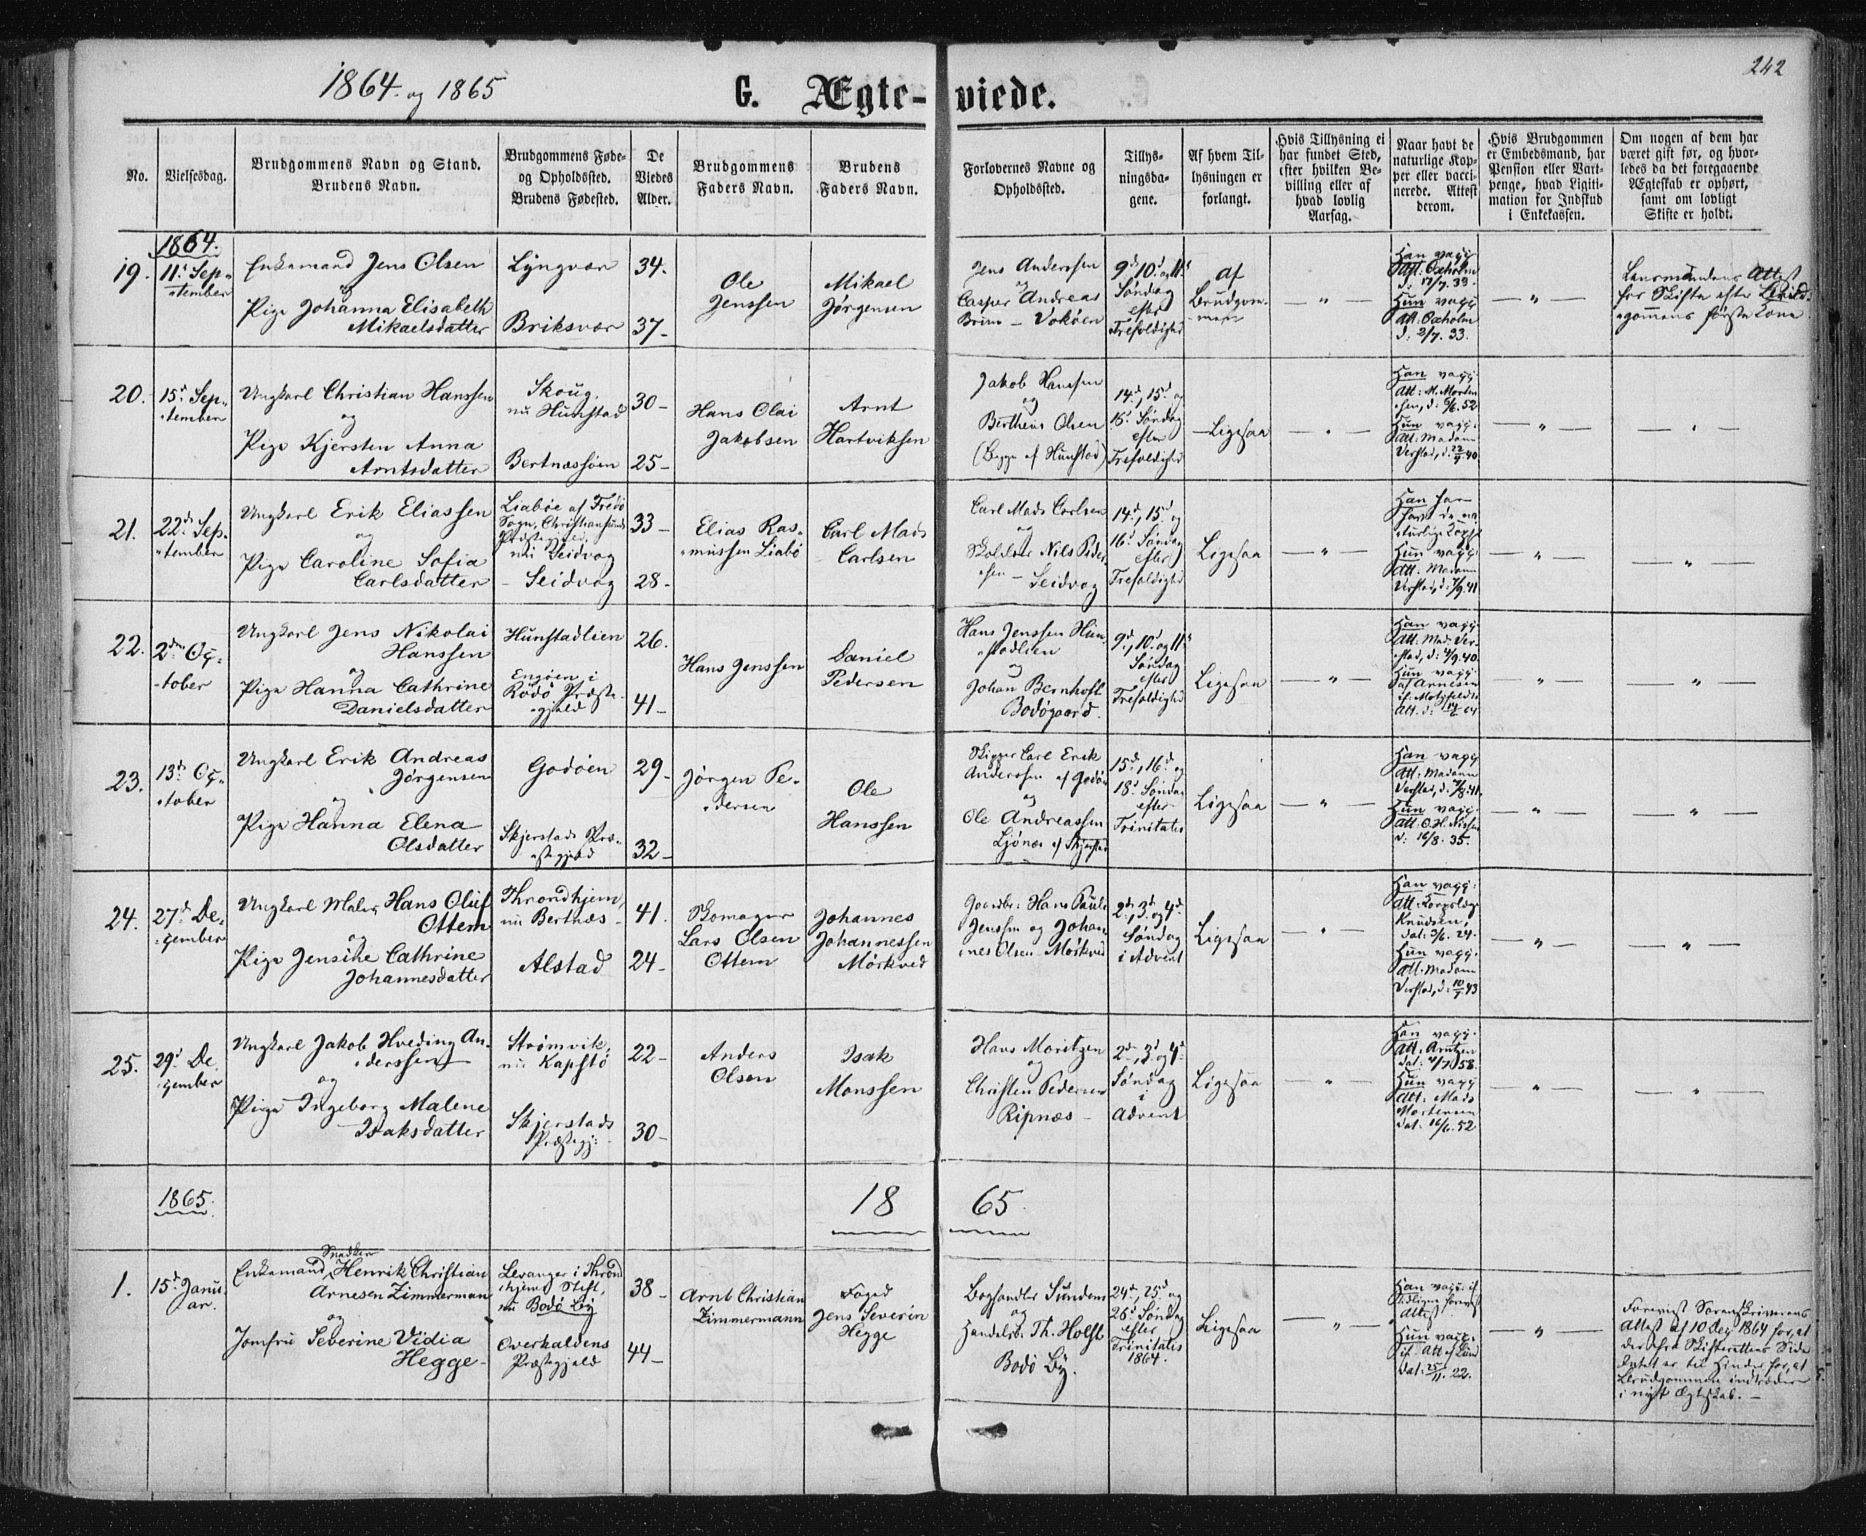 242
1864 og 1865
G. Ægte-viede.
No.
Vielsesdag.
Brudgommens Navn og Stand.
Brudens Navn.
Brudgommens Føde-
og Opholdssted.
Brudens Fødested.
De
Viedes
Alder.
Brudgommens
Faders Navn.
Brudens
Faders Navn.
Forlovernes Navne og
Opholdssted.
Tillys-
ningsda-
gene.
Af hvem Til-
lysningen er
forlangt.
Hvis Tillysning ei
har fundet Sted,
efter hvilken Be-
villing eller af
hvad lovlig
Aarsag.
Naar havt de
naturlige Kop-
per eller vacci-
nerede. Attest
derom.
Hvis Brudgommen
er Embedsmand, har
Pension eller Vart-
penge, hvad Ligiti-
mation for Indskud
i Enkekassen.
Om nogen af dem har
været gift før, og hvor-
ledes da det foregaaende
Ægteskab er ophørt,
samt om lovligt
Skifte er holdt.
1864.
19.
11te Sep-
tember
Enkemand Jens Olsen
og
Pige Johanna Elisabeth
Mikaelsdatter
Lyngvær
Briksvær
34.
37-
Ole
Jenssen
Mikael
Jørgensen
Jens Anderssen
og
Caspar Andreas
Brun - Vokøen
9d, 10d og 11te
Søndag
efter
Trefoldighed
af
Brudgom-
men
- " -
Han vacc:
Att. Oxholm
d: 17/7. 33.
Hun vacc:
Att. Oxholm
d: 2/7. 33.
- " -
Lensmandens Attest
for Skifte efter Brud-
gommens første Kone.
20.
15d Sep-
tember
Ungkarl Christian Hanssen
og
Pige Kjersten Anna
Arntsdatter
Skoug,
nu Hunstad
Bertnæssøen
30-
25-
Hans Olai
Jakobsen
Arnt
Hartviksen
Jakob Hanssen
og
Bertheus Olsen
(Begge af Hunstad)
14d, 15d og
16d Søndag
efter
Trefoldighed
Ligesaa
- " -
Han vacc:
Att: M. Morten-
sen, d: 6/6. 52
Hun vacc:
Att: Madam
Verstad, d: 22/9. 40.
- " -
- " -
21.
22d Sep-
tember
Ungkarl Erik Eliassen
og
Pige Caroline Sofia
Carlsdatter
Liabøe af Fredø
Sogn, Christiansunds
Præstegjeld,
nu Seidvag
- Seidvag
33-
28-
Elias Ras-
mussen Liabø
Carl Mads
Carlsen
Carl Mads Carlsen
og
Nils Peder-
sen - Seidvag
14d, 15d og
16d Søndag
efter
Trefoldighed
Ligesaa
- " -
Han har
havt de na-
turlige Kopper
Hun vacc:
Att. Madam
Verstad, d: 7/9. 41
- " -
- " -
22.
2den Oc-
tober
Ungkarl Jens Nikolai
Hanssen
og
Pige Hanna Cathrine
Danielsdatter
Hunstadlien
i
Rødø Præste-
gjeld
26.
41-
Hans Jenssen
Daniel
Pedersen
Hans Jenssen Hun-
stadlien
og
Johan Bernhoft
Bodøgaard.
9d, 10d og 11te
Søndag
efter
Trefoldighed
Ligesaa
- " -
Han vacc:
Att: Mad. Ver-
stad, d: 4/9. 40.
Hun vacc:
af Arnesen
- " -
- " -
23.
13d Oc-
tober
Ungkarl Erik Andreas
Jørgensen
og
Pige Hanna Elena
Olsdatter
Godøen
Skjerstads Præ-
stegjeld
29-
32-
Jørgen Pe-
dersen
Ole
Hanssen
Skipper Carl Erik
Anderssen af Godøen
og
Ole Andreassen
Ljønæs af Skjerstad
15d, 16d og
18d Søndag
efter
Trinitatis
Ligesaa
- " -
Han vacc:
Att: Madam
Verstad, d: 7/8. 41.
Hun vacc:
Att: O. H. Nissen
d: 16/8. 35.
- " -
- " -
24.
27d De-
cember
Ungkarl Maler Hans Oluf
Ottem
og
Pige Jensine Cathrine
Johannesdatter
Throndhjem,
nu Bertnæs -
Alstad
41.
24-
Skomager
Lars Olsen
Ottem
Johannes
Johannessen
Mørkved
Gaardbr: Hans Paul
Jenssen og Johan-
nes Olsen Mørkved
2d, 3d og 4de
Søndag
i Advent
Ligesaa
- " -
Han vacc:
Att:
Knudsen,
dat: 3/6. 24.
Hun vacc:
Att: Madam
Verstad, d: 10/9. 43
- " -
- " -
25.
29d De-
cember
Ungkarl Jakob Hveding An-
derssen
og
Pige Ingeborg Malene
Isaksdatter
Strømvik,
nu Kapstø
Skjerstads
Præstegj:
22-
30-
Anders
Olsen
Isak
Monssen
Hans Moritzen
og
Christen Pedersen
Ripnæs -
2d, 3d og 4de
Søndag
i
Advent
Ligesaa
- " -
Han vacc.
Att: Arntzen
dat: 4/7. 58.
Hun vacc:
Att: Mads
Mortensen
dat: 16/6. 52
- " -
- " -
1865.
18 65.
1.
15d Janu-
ar.
Snedker
Enkemand, Henrik Christian
Arnesen Zimmerman
og
Jomfru Severine Vidia
Hegge -
Levanger i Thrond-
hjems Stift,
nu Bodø By
Overhaldens
Præstegjeld
38-
44-
Arnt Christian
Zimmermann
Foged
Jens Severin
Hegge
Boghandler Sundens
og
Handelsb. Th. Holst
Bodø By.
24d, 25d og
26d Søndag
efter
Trinitatis
1864.
Ligesaa
- " -
Han vacc: if.
tidligere forevist
Attest
Hun vacc:
if. Att af Lund
dat: 25/11. 22.
- " -
Forevist Sorenskriverens
Attest af 10 Dec 1864 for, at
der fra Skifterettens Side
Intet er til Hinder for, at
Brudgommen indtræder
i nyt Ægteskab. -